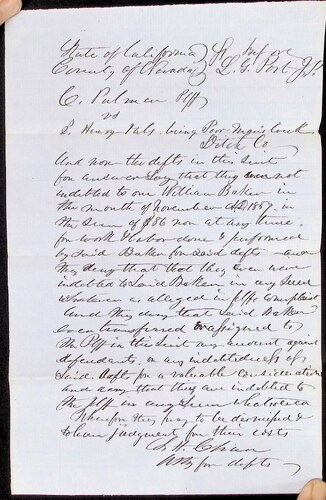 State of California } ss Before
County of Nevada } L. G. Port J.P.
C. Palmer Plff
vs
S. Henry & als. being Poor Man's Creek
Ditch Co
And now the defts in this suit
for answer say that they ever not
indebted to one William Baker in
the month of November A.D. 1857. in
the sum of $86 nor at any time,
for work & labor done & performed
by said Baker for said defts and
they deny that that they ever were
indebted to said Baker in any sum
whatever as alleged in plffs complaint
And they deny that said Baker
ever transferred or assigned to
the Plff in this suit any amount against
defendants, or any indebtedness of
said defts for a valuable consideration
and deny that they are indebted to
the plff in any sum whatsoever
Wherefore they pray to be dismissed &
to have judgment for their costs
Atty for defts